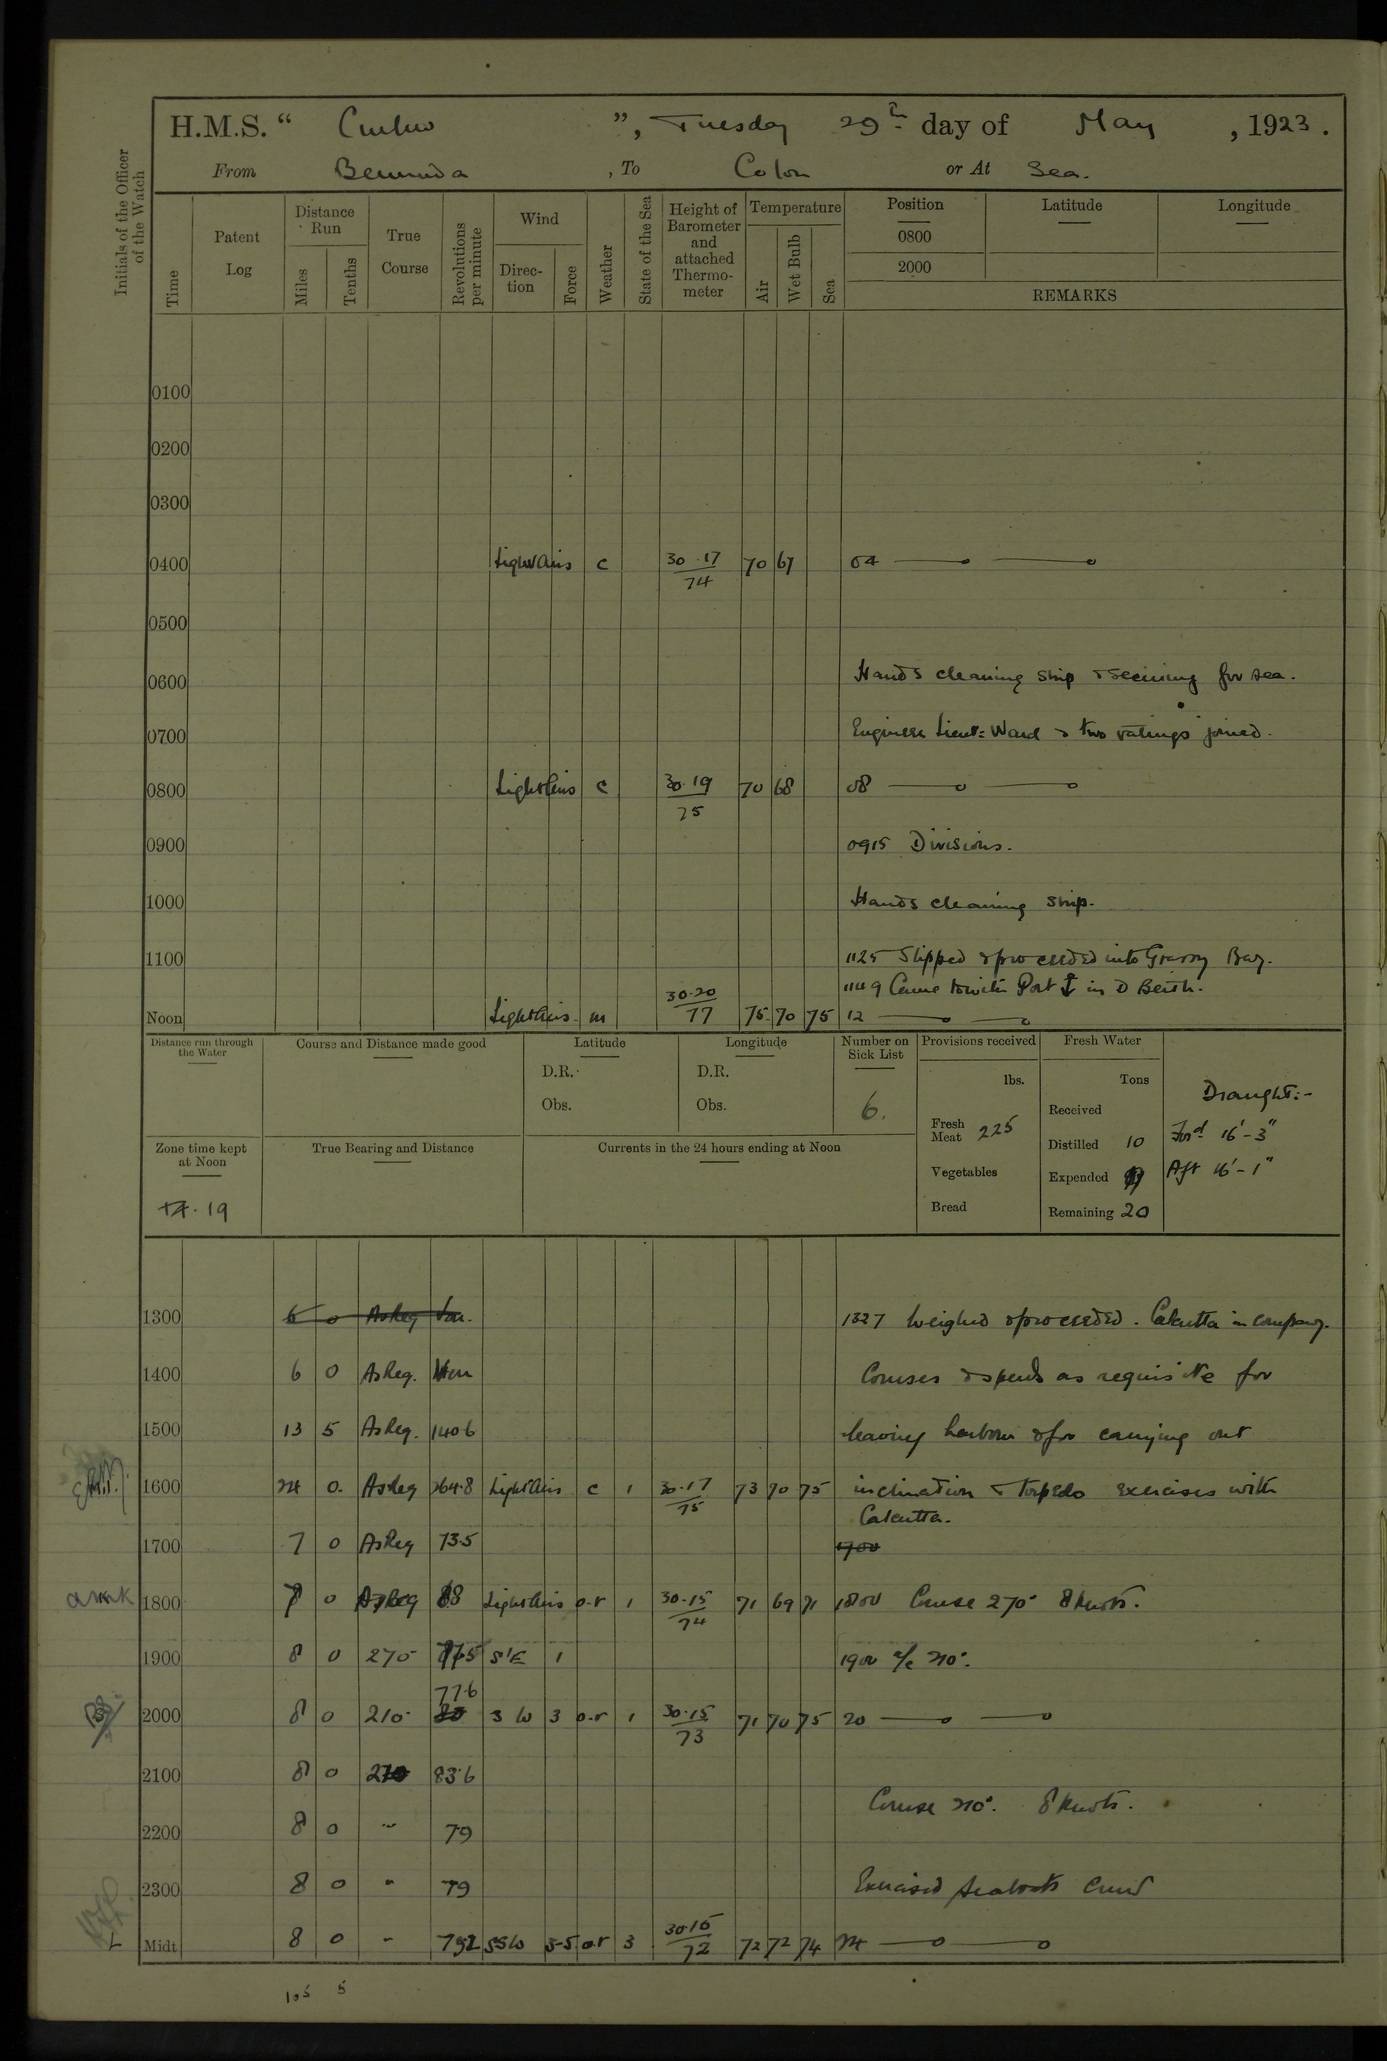 H.M.S. “ Curlew ”, Tuesday 29th day of May , 1923.
From Bermuda , To Colon or At Sea.
Initials of the Officer of the Watch
Time
Patent Log
Distance Run
Miles
Tenths
True Course
Revolutions per minute
Wind
Direction
Force
Weather
State of the Sea
Height of Barometer and attached Thermometer
Temperature
Air
Wet Bulb
Sea
Position
Latitude
Longitude
0800
2000
REMARKS
0100
0200
0300
0400 Light Airs c 30.17/74 70 67 04
0500
0600 Hands cleaning ship & securing for sea.
0700 Engineer Lieut: Ward & two ratings joined.
0800 Light Airs c 30.19/75 70 68 08
0900 0915 Divisions.
1000 Hands cleaning ship.
1100 1125 Slipped & proceeded into Grassy Bay.
1149 Came to with Port ⚓ in D Berth.
Noon Light Airs m 30.20/77 75 70 75 12
Distance run through the Water
Course and Distance made good
Latitude
D.R.
Obs.
Longitude
D.R.
Obs.
Number on Sick List
6.
Provisions received
lbs.
Fresh Meat 225
Vegetables
Bread
Fresh Water
Tons
Received
Distilled 10
Expended
Remaining 20
Draught:-
Ford 16'-3"
Aft 16'-1"
Zone time kept at Noon
+4.19
True Bearing and Distance
Currents in the 24 hours ending at Noon
1300 6 0 As Req Var. 1327 Weighed & proceeded. Calcutta in company.
1400 6 0 As Req. Courses & speeds as requisite for
1500 13 5 As Req. 140.6 leaving harbour & for carrying out
1600 24 0. As Req 264.8 Light Airs c 1 30.17/75 73 70 75 inclination & torpedo exercises with
Calcutta.
1700 7 0 As Req 73.5 1700
1800 0 As Req 68 Light Airs o.r 1 30.15/74 71 69 71 1800 Course 270° 8 knots.
1900 8 0 270 S'E 1 1900 a/c 210°.
77.6
2000 8 0 210 80 SW 3 o.r 1 30.15/73 71 70 75 20
2100 8 0 210 83.6
Course 210°. 8 knots.
2200 8 0 " 79
2300 8 0 " 79 Exercised Seaboats Crew
Midt 8 0 " 79.2 SSW 3-5 o.r 3 30.15/72 72 72 74 24
105 5